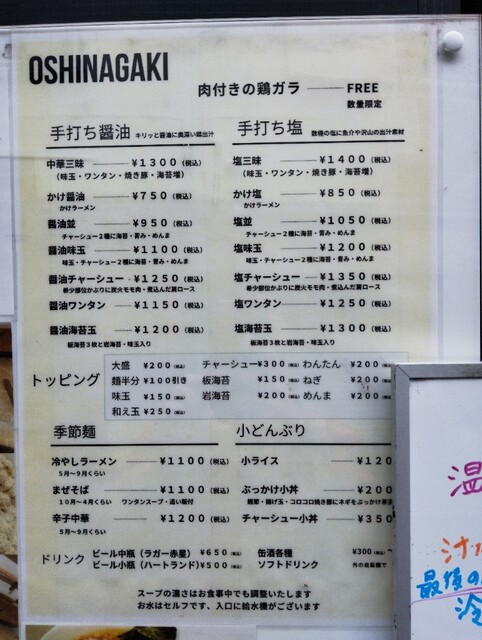 OSHINAGAKI
肉付きの鶏ガラ FREE
数量限定
手打ち醤油 キリッと醤油に奥深い鶏出汁
中華三昧 ¥1300(税込)
(味玉・ワンタン・焼き豚・海苔増)
かけ醤油 ¥750(税込)
かけラーメン
醤油並 ¥950(税込)
チャーシュー2種に海苔・青み・めんま
醤油味玉 ¥1100(税込)
味玉・チャーシュー2種に海苔・青み・めんま
醤油チャーシュー ¥1250(税込)
希少部位かぶりに炭火モモ肉・煮込んだ肩ロース
醤油ワンタン ¥1150(税込)
醤油海苔玉 ¥1200(税込)
板海苔3枚と岩海苔・味玉入り
手打ち塩 数種の塩に魚介や沢山の出汁素材
塩三昧 ¥1400(税込)
(味玉・ワンタン・焼き豚・海苔増)
かけ塩 ¥850(税込)
かけラーメン
塩並 ¥1050(税込)
チャーシュー2種に海苔・青み・めんま
塩味玉 ¥1200(税込)
味玉・チャーシュー2種に海苔・青み・めんま
塩チャーシュー ¥1350(税込)
希少部位かぶりに炭火モモ肉・煮込んだ肩ロース
塩ワンタン ¥1250(税込)
塩海苔玉 ¥1300(税込)
板海苔3枚と岩海苔・味玉入り
トッピング
大盛 ¥200(税込) チャーシュー¥300(税込) わんたん ¥200(税込)
麺半分 ¥100引き 板海苔 ¥150(税込) ねぎ ¥200
味玉 ¥150(税込) 岩海苔 ¥200(税込) めんま ¥200
和え玉 ¥250(税込)
季節麺
冷やしラーメン ¥1100(税込)
5月〜9月くらい
まぜそば ¥1100(税込)
10月〜4月くらい ワンタンスープ・追い飯付
辛子中華 ¥1200(税込)
5月〜9月くらい
小どんぶり
小ライス ¥120
ぶっかけ小丼 ¥200
鰹節・揚げ玉・コロコロ焼き豚にネギをぶっかけ
チャーシュー小丼 ¥350
ドリンク
ビール中瓶(ラガー赤星) ¥650(税込) 缶酒各種 ¥300(税込)〜
ビール小瓶(ハートランド)¥500(税込) ソフトドリンク 外の自販機で
スープの濃さはお食事中でも調整いたします
お水はセルフです、入口に給水機がございます
温
汁
最後の
冷